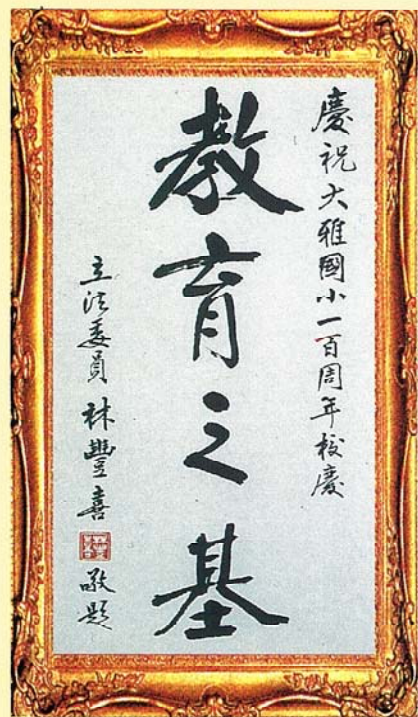 慶祝大雅國小一百周年校慶
教育之基
立法委員 林豐喜 敬題